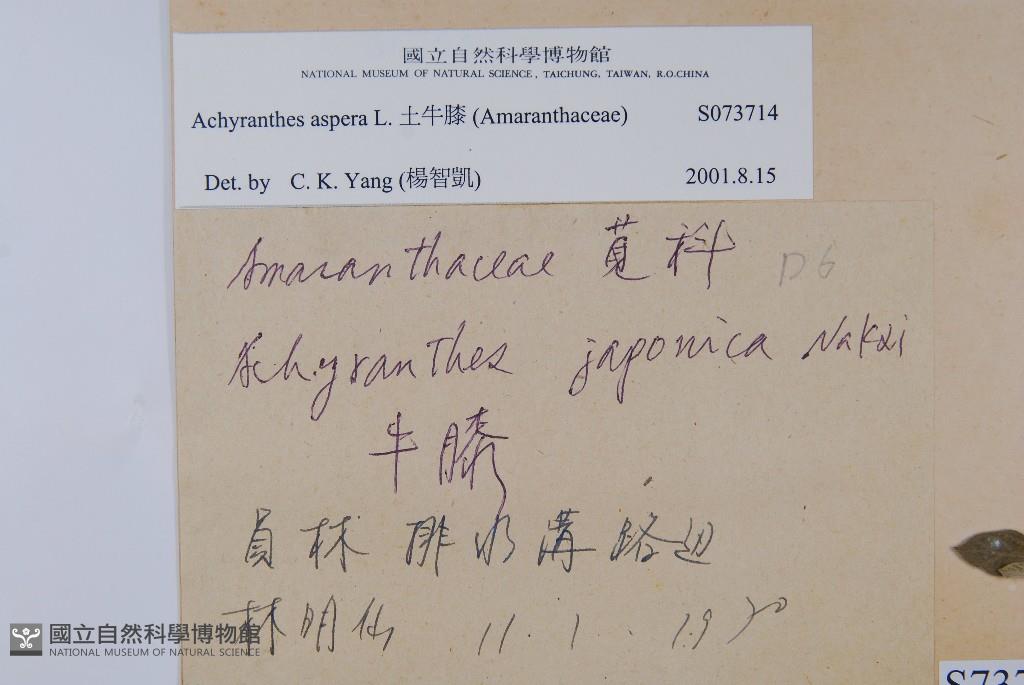 國立自然科學博物館
NATIONAL MUSEUM OF NATURAL SCIENCE, TAICHUNG, TAIWAN, R.O.CHINA
Achyranthes aspera L. 土牛膝 (Amaranthaceae) S073714
Det. by C. K. Yang (楊智凱) 2001.8.15
Amaranthaceae 莧科 D6
Achyranthes japonica Nakai
牛膝
員林 排水溝路边
林明仙 11. 1. 1970
國立自然科學博物館
NATIONAL MUSEUM OF NATURAL SCIENCE